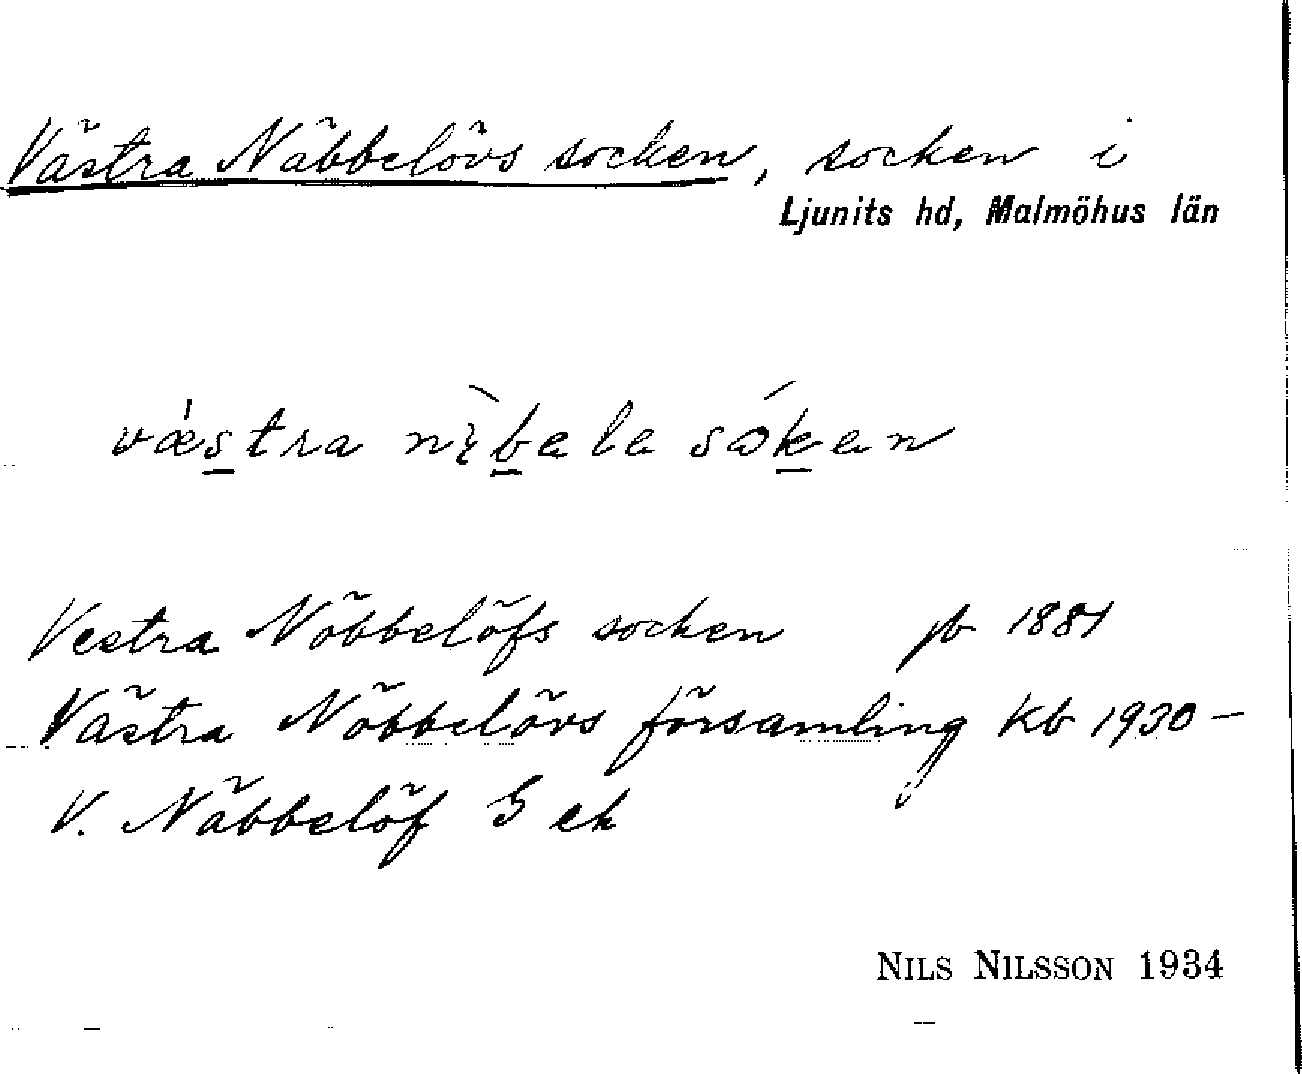 Västra Näbbelövs socken, socken i
Ljunits hd, Malmöhus län
væ̀s̲tra nɩ̀b̲ele sók̲en
Vestra Nöbbelöfs socken jb 1881
Västra Nöbbelövs församling Kb 1930–
V. Näbbelöf G ek
NILS NILSSON 1934